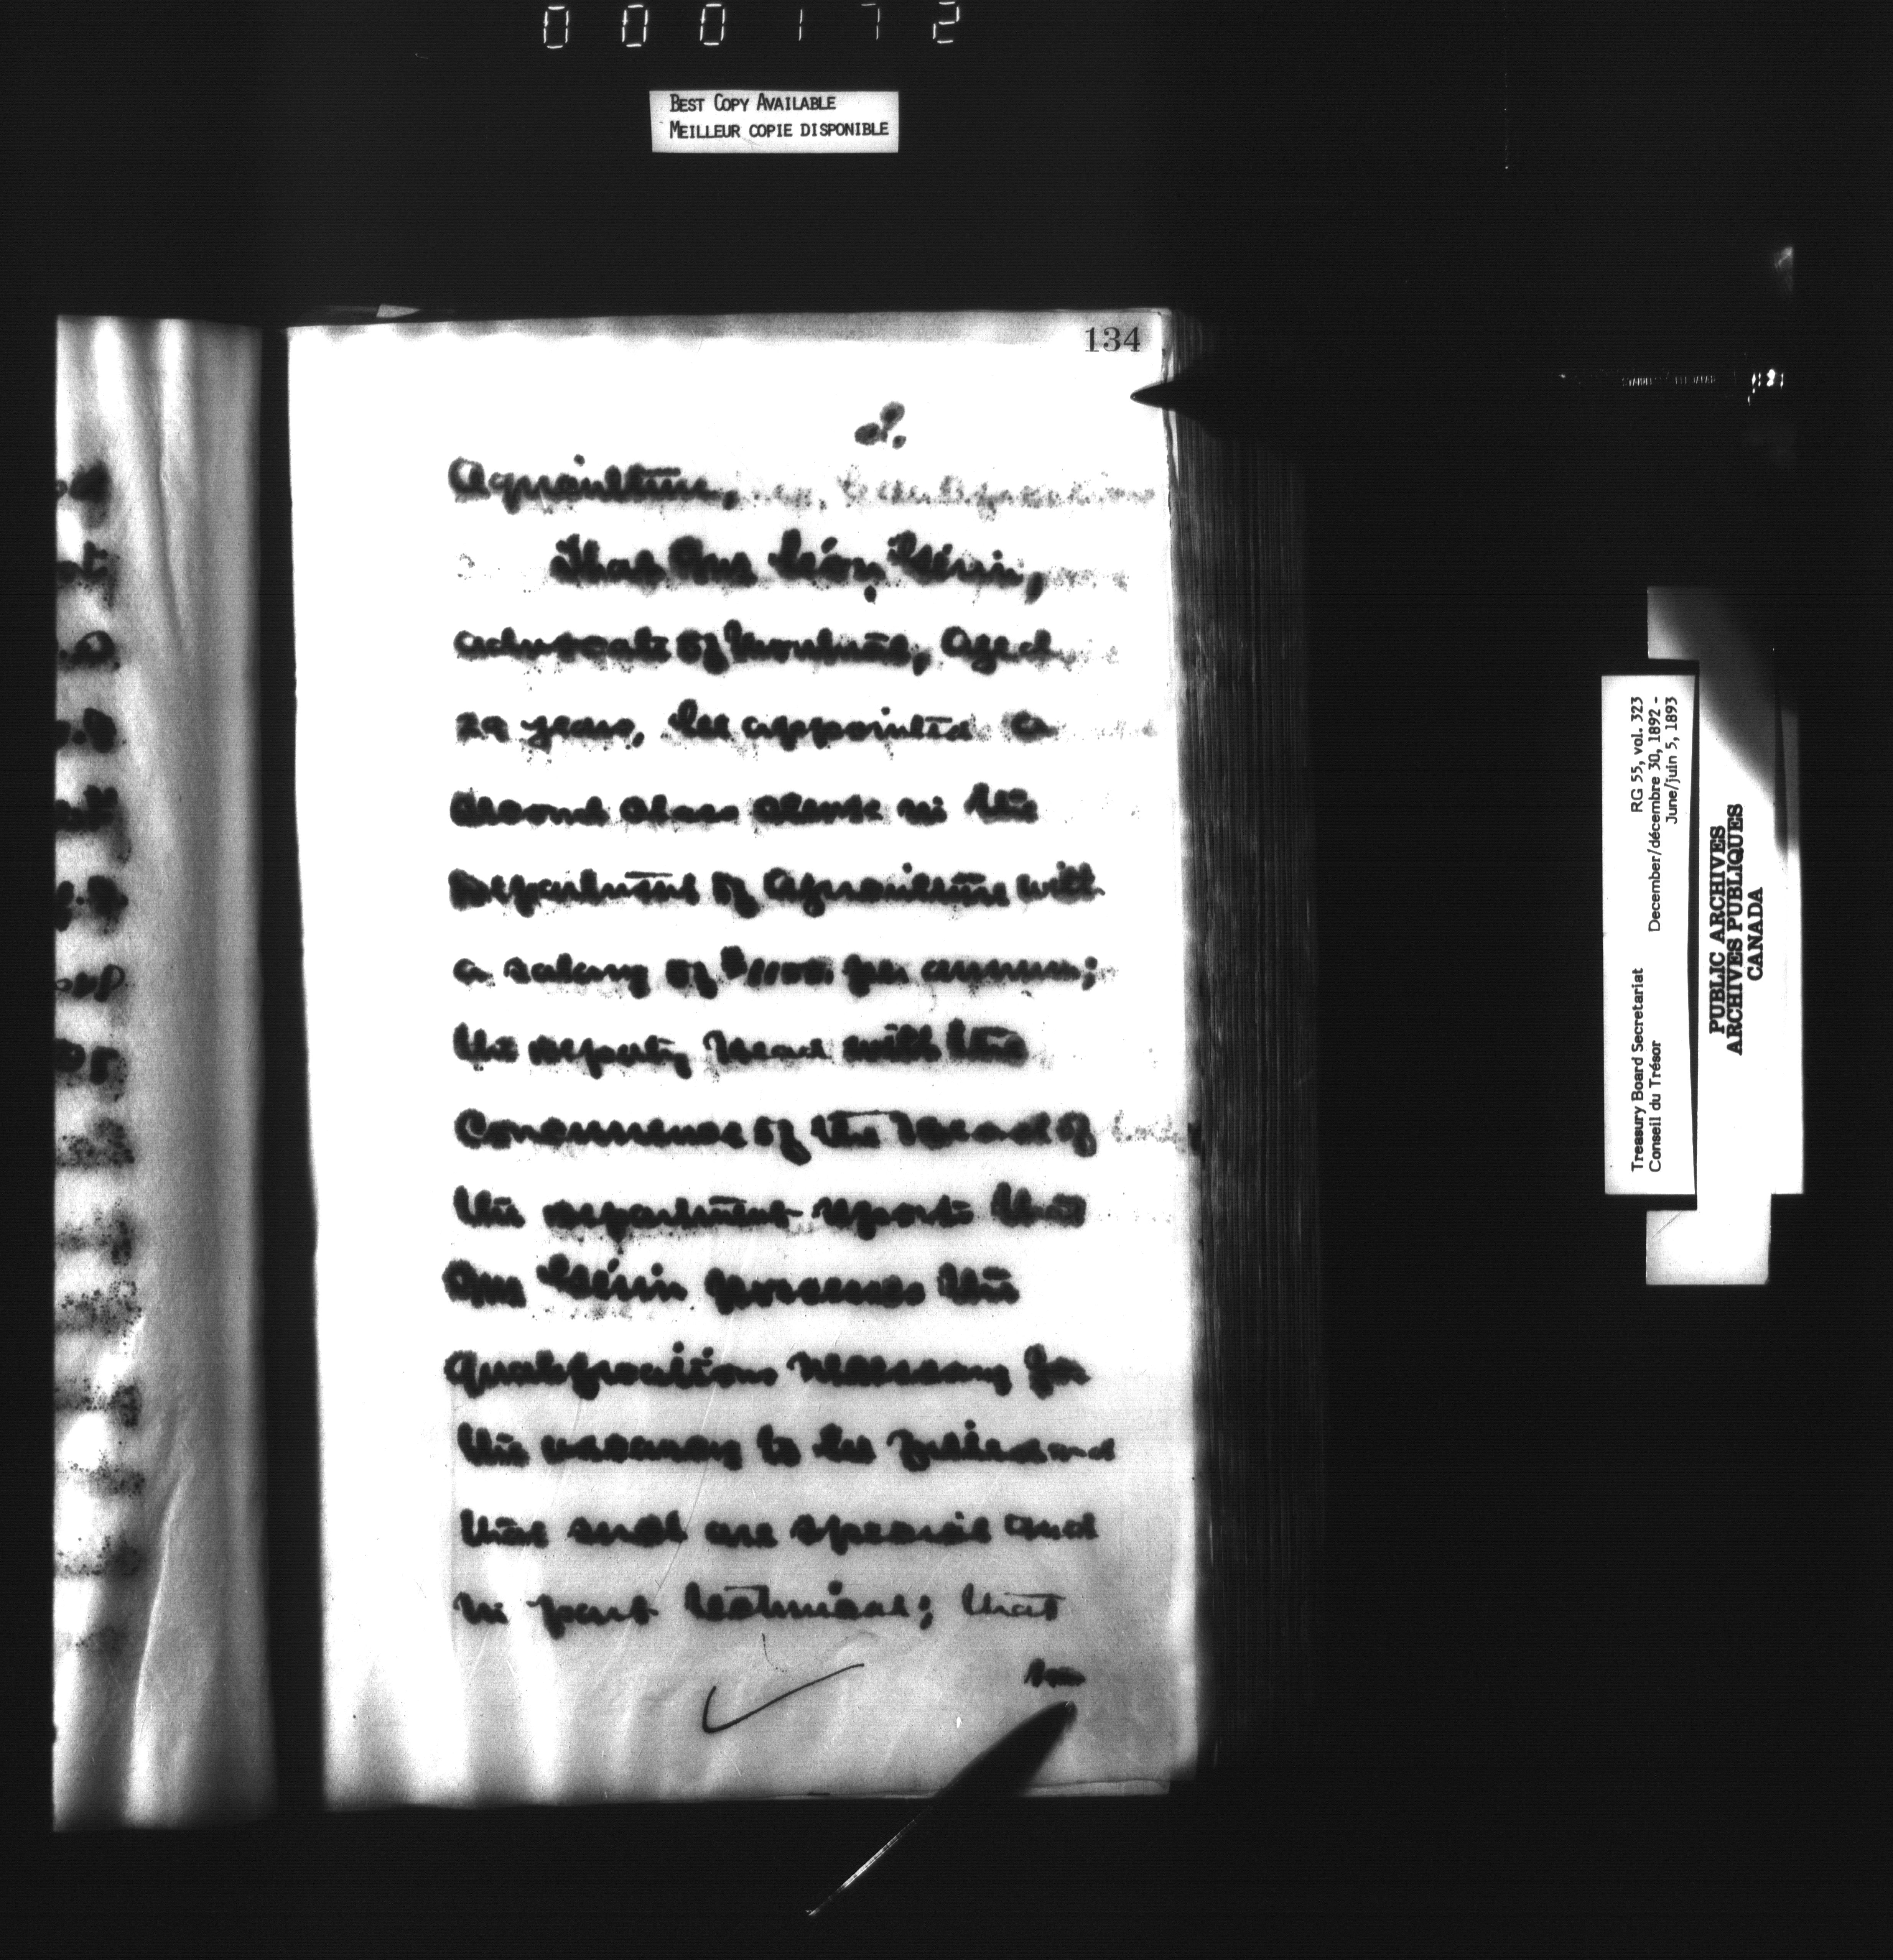 000172
BEST COPY AVAILABLE
MEILLEUR COPIE DISPONIBLE
134
2.
Agriculture,
That Mr Léon Gérin,
advocate of Montreal, Aged
29 years, be appointed a
second class clerk in the
Department of Agriculture with
a salary of $1100. per annum;
the deputy head with the
Concurrence of the Head of
the department reports that
Mr Gérin possesses the
qualifications necessary for
the vacancy to be filled and
that such are special and
in part technical; that
Treasury Board Secretariat RG 55, vol. 323
Conseil du Trésor December/décembre 30, 1892 -
June/juin 5, 1893
PUBLIC ARCHIVES
ARCHIVES PUBLIQUES
CANADA